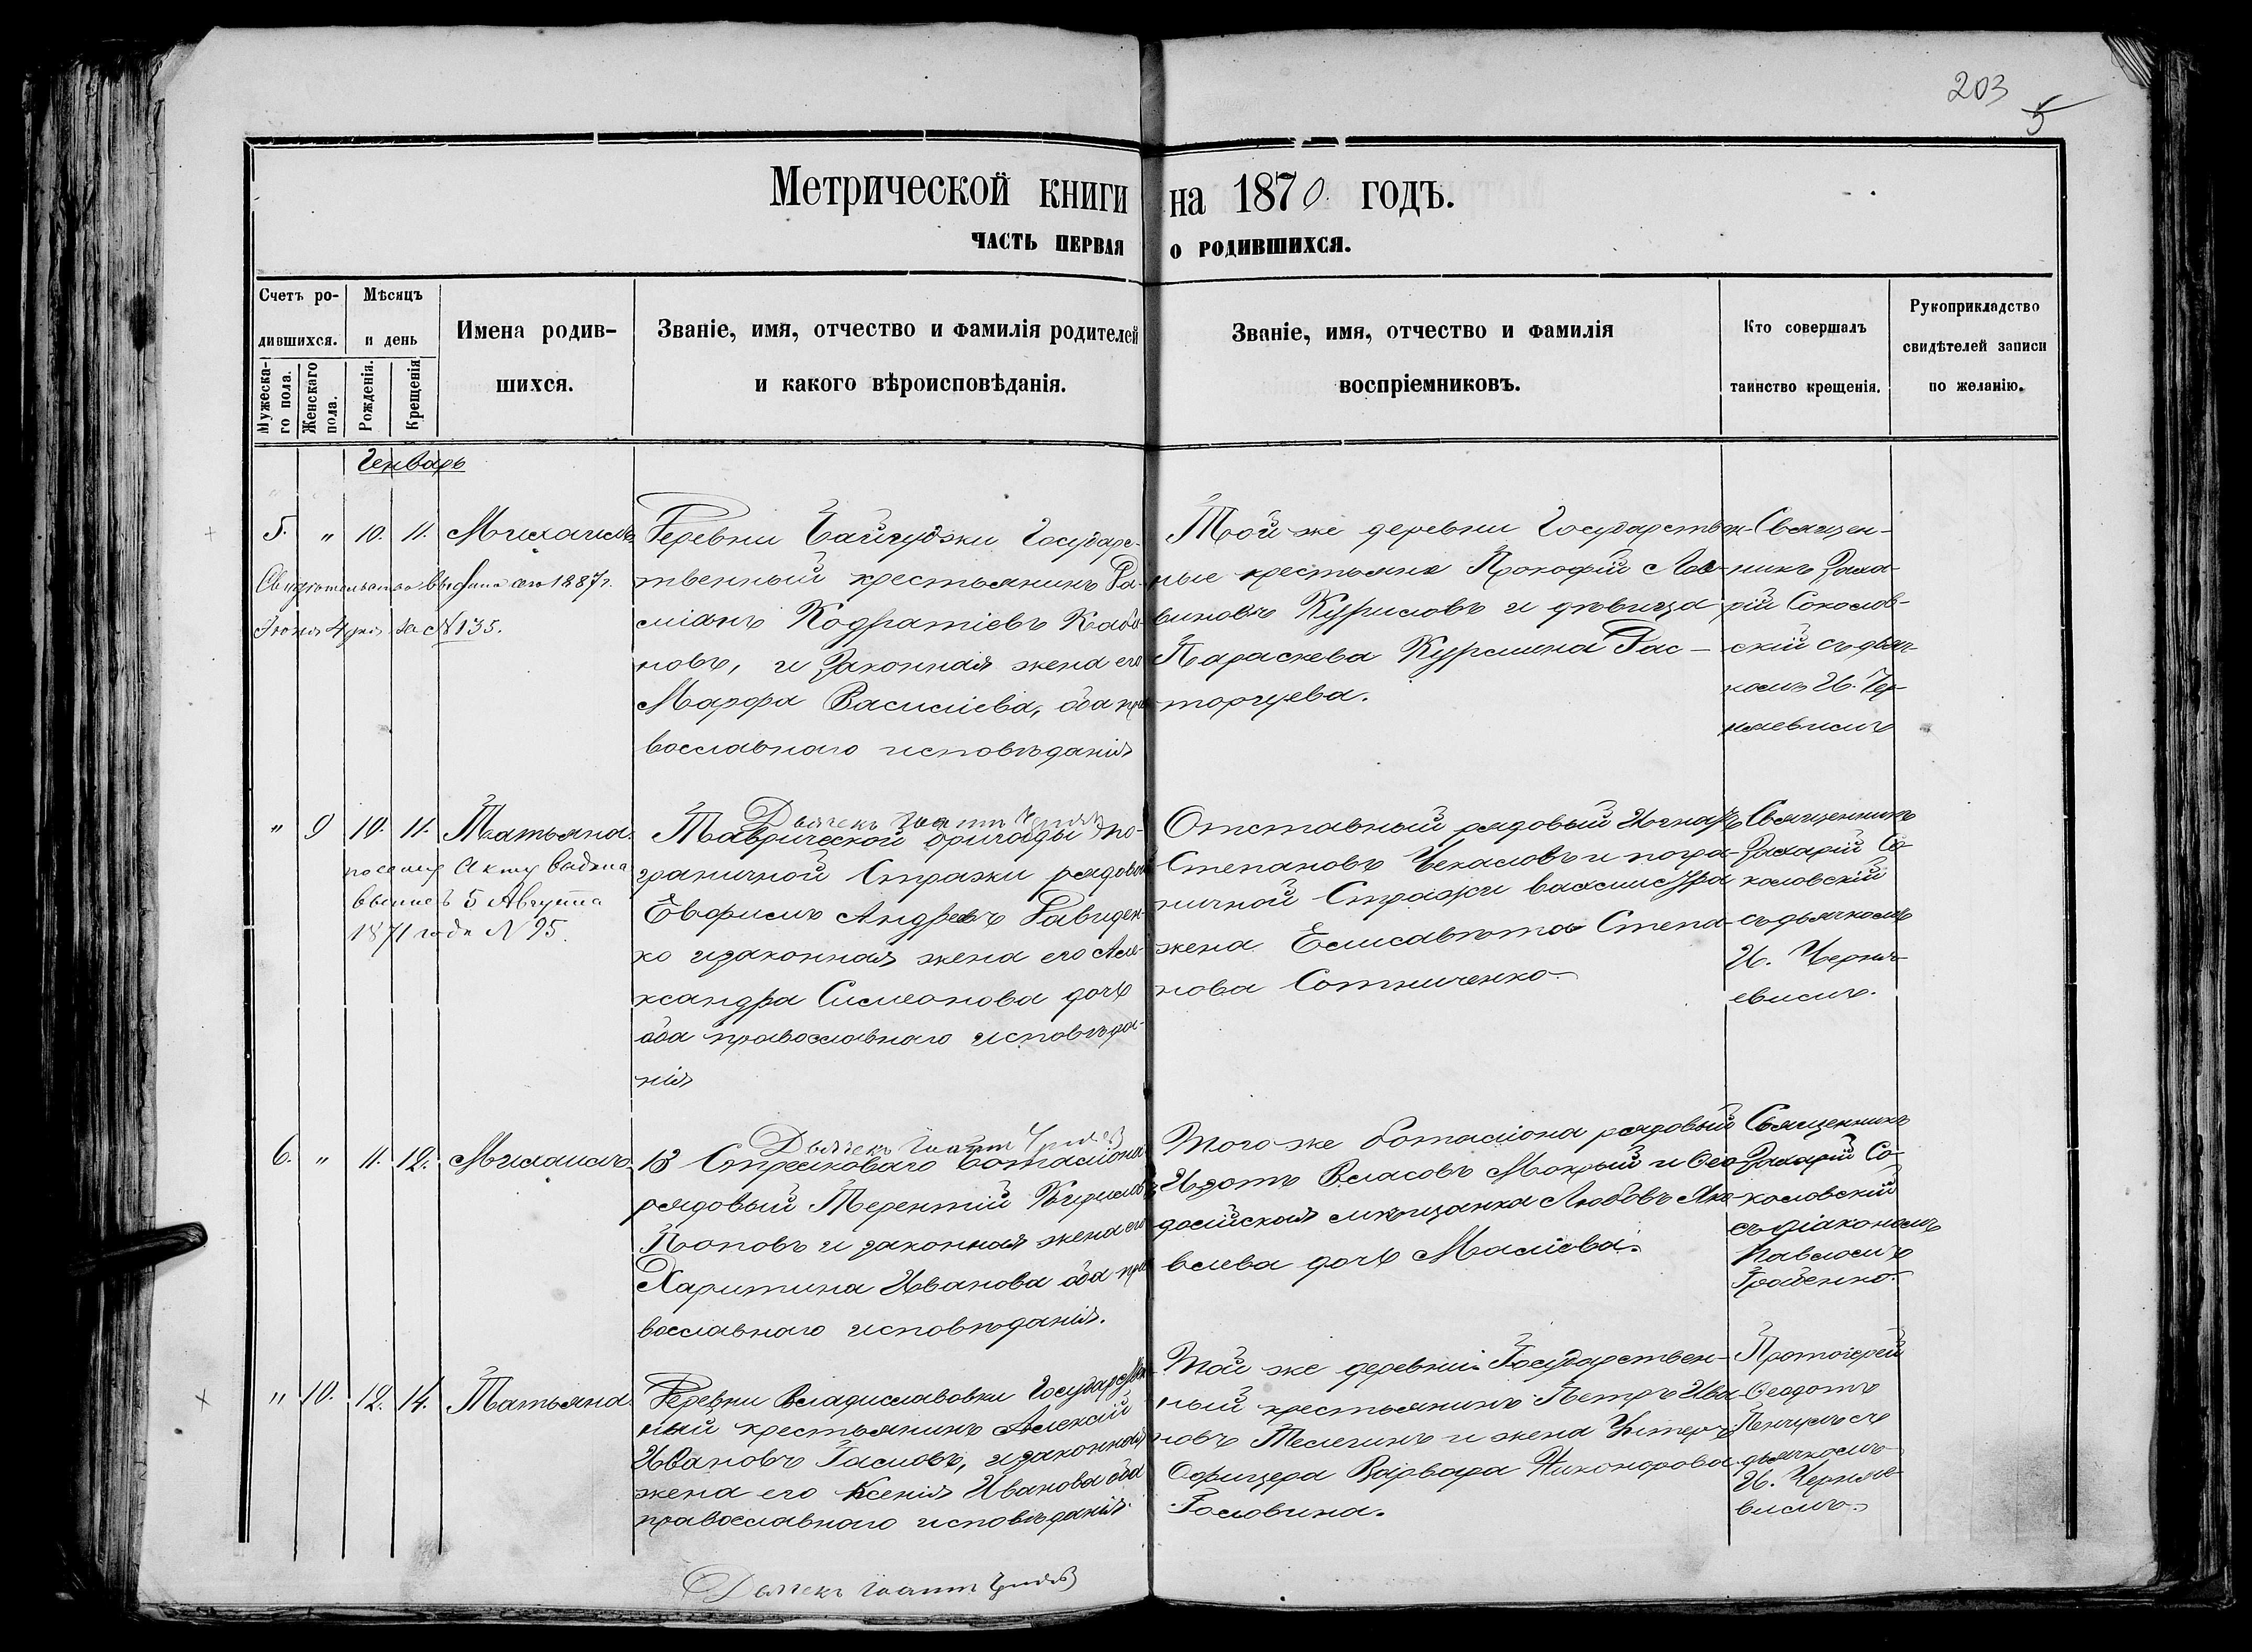 203
5
Метрической книги на 1870 годъ.
ЧАСТЬ ПЕРВАЯ о РОДИВШИХСЯ.
Счетъ ро-
дившихся.
Мужеска-
го пола.
Женскаго
пола.
Мѣсяцъ
и день
Рожденія.
Крещенія
Имена родив-
шихся.
Званіе, имя, отчество и фамилія родителей
и какого вѣроисповѣданія.
Званіе, имя, отчество и фамилія
воспріемниковъ.
Кто совершалъ
таинство крещенія.
Рукоприкладство
свидѣтелей записи
по желанію.
Генварь
5. " 10. 11. Михаилъ
Свидѣтельство выдано сего 1887 г.
Іюня 4 дня за №135.
Деревни Байгуджи Государс-
твенный крестьянинъ Да-
міанъ Кодратіевъ Каба-
новъ, и законная жена его
Марфа Василіева, оба пра
вославнаго исповѣданія
Той-же деревни Государствен-
ные крестьяне Прокофій
виновъ Куриловъ и дѣвица
Параскева Курилина Рас-
торгуева.
Священ-
никъ Заха-
рій Соколов-
скій съ дьяч-
комъ И. Чер-
нявскимъ
" 9 10. 11. Татьяна.
по сему Акту выдана
5 Августа
1871 года N 95.
Дьячекъ Іоаннъ
Таврической бригады по-
граничной Стражи рядовой
Евфимъ Андреевъ Давиден-
ко и законная жена его Але-
ксандра Симеонова дочь
оба православнаго исповѣда-
нія
Отставный рядовый Игнатъ
Степановъ Чекаловъ и погра-
ничной Стражи вахмистра
жена Елисавѣта Степа-
нова Сотниченко.
Священникъ
Захарій Со-
коловскій
съ дьячкомъ
И. Черня-
6. " 11. 12. Михаилъ.
Дьячекъ Іоаннъ
13 Стрелковаго баталіона
рядовый Терентій Кириловъ
Поповъ и законная жена его
Харитина Иванова оба пра
вославнаго исповѣданія.
Того-же баталіона рядовый
Изотъ Власовъ Мокрый и Ѳео-
досійская мѣщанка Любовь Яко-
влева дочь Маліева.
Священникъ
Захарій Со-
коловскій
съ діакономъ
Павломъ
" 10. 12. 14. Татьяна.
Деревни Владиславовки Государствен
ный крестьянинъ Алексій
Ивановъ и законная
жена его Ксенія Иванова оба
православнаго исповѣданія.
Той же деревни Государствен-
ный крестьянинъ Петръ Ива-
новъ Телегинъ и жена Унтеръ
Офицера Варвара Никонорова
Головина.
Протоіерей
Ѳеодотъ
съ
дьячкомъ
И. Черняв-
Дьячекъ Іоаннъ